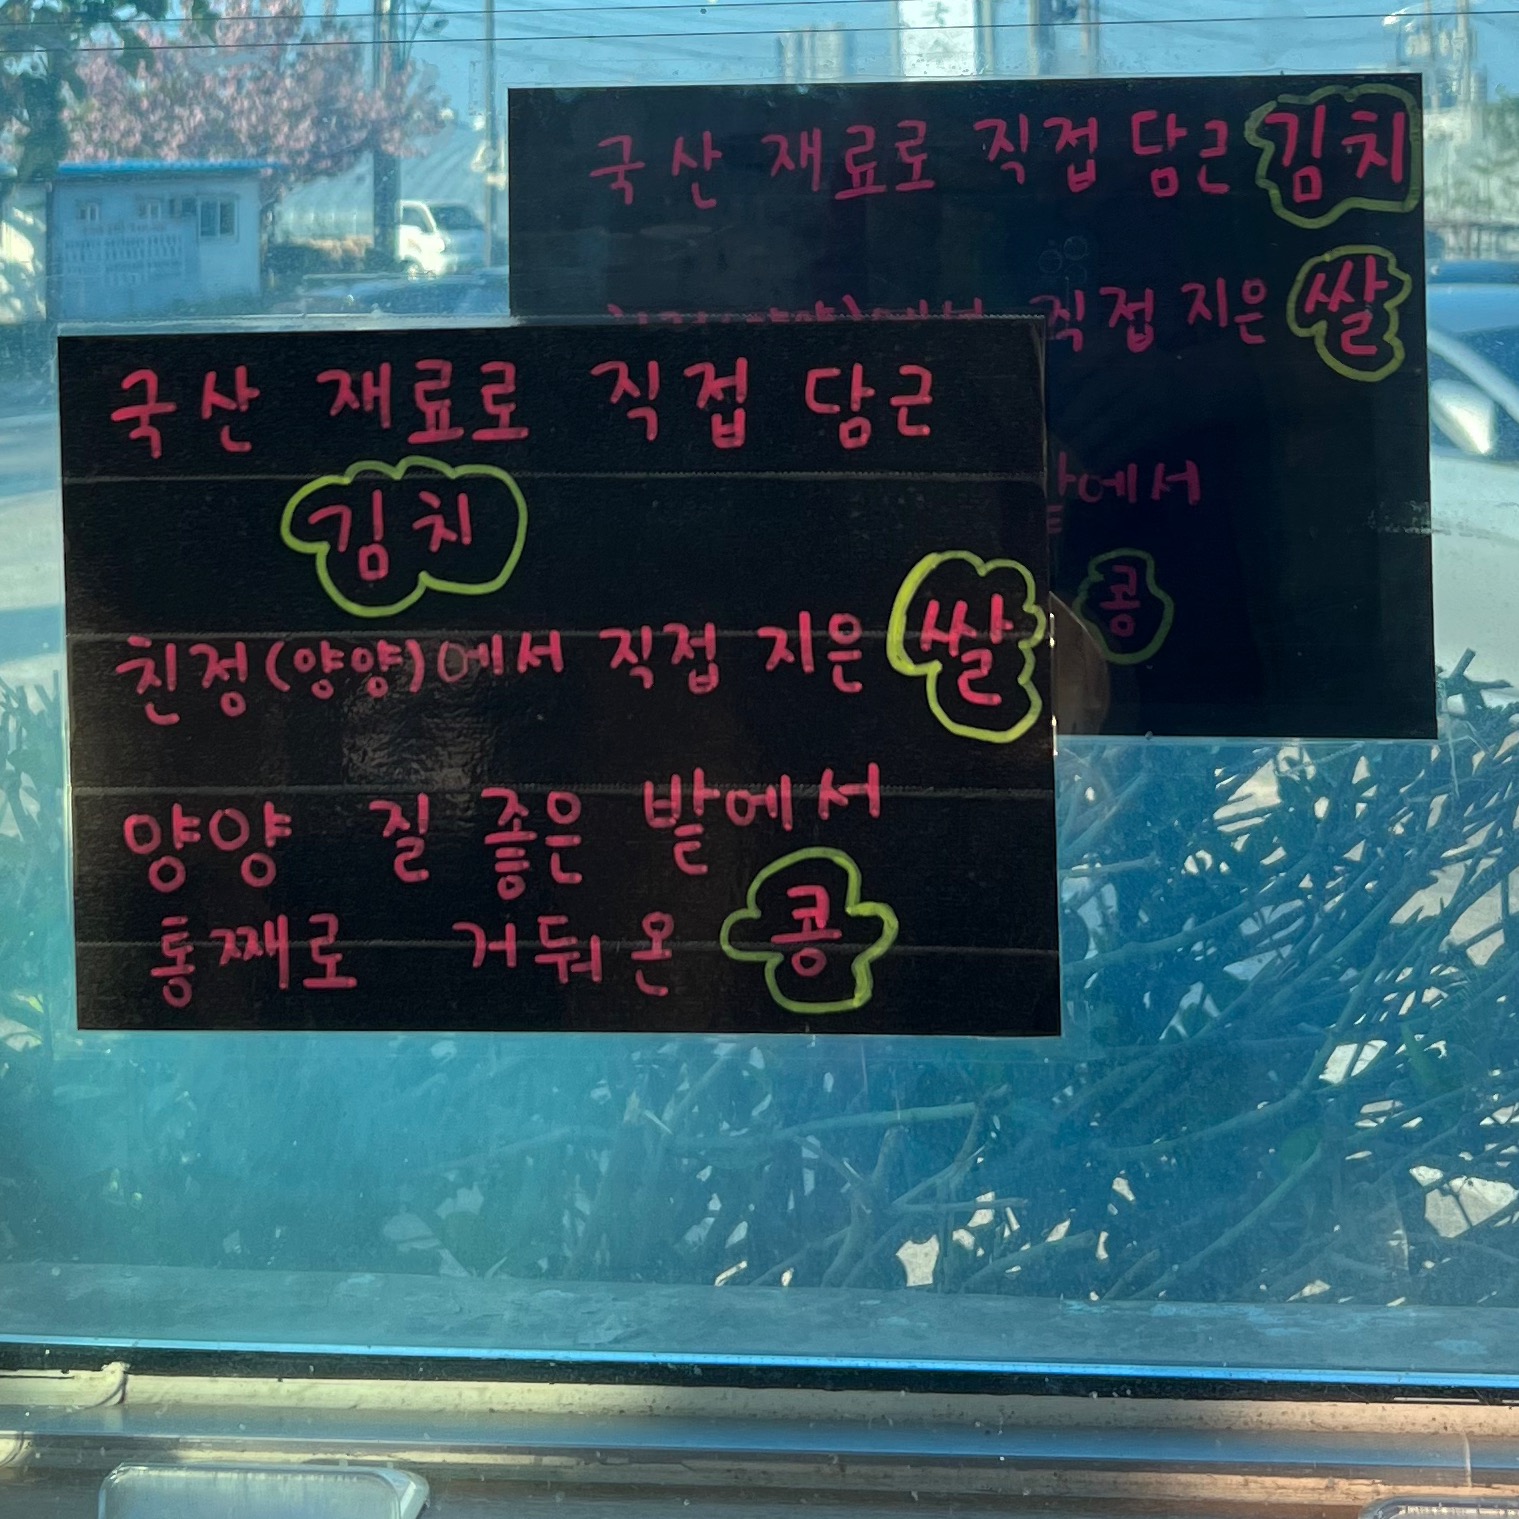 국산 재료로 직접 담근 김치
직접 지은 쌀
에서
콩
국산 재료로 직접 담근
김치
친정(양양)에서 직접 지은 쌀
양양 질 좋은 밭에서
통째로 거둬 온 콩